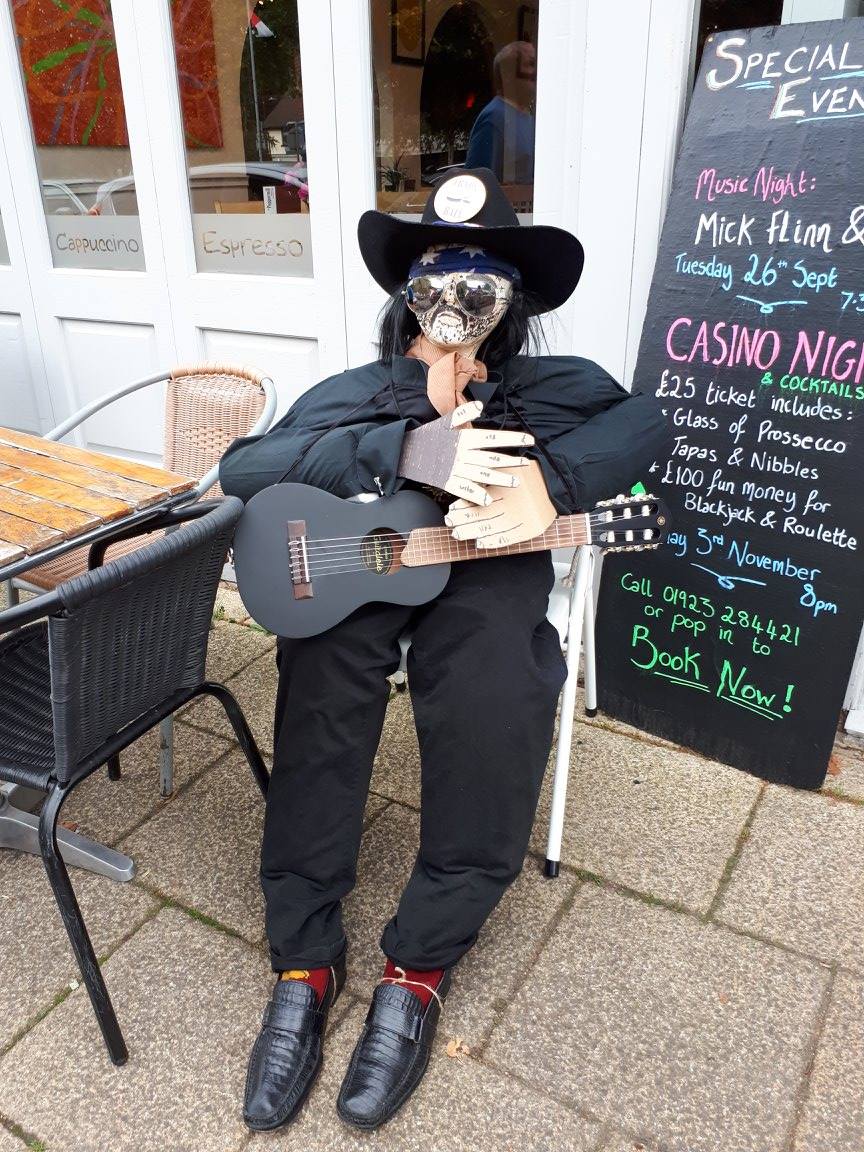 Cappuccino
Espresso
SPECIAL
EVEN
Music Night:
Mick Flinn &
Tuesday 26th Sept
7:3
CASINO NIGH
& COCKTAILS
£25 ticket includes:
* Glass of Prossecco
Tapas & Nibbles
* £100 fun money for
Blackjack & Roulette
ay 3rd November
8pm
Call 01923 284421
or pop in to
Book Now!